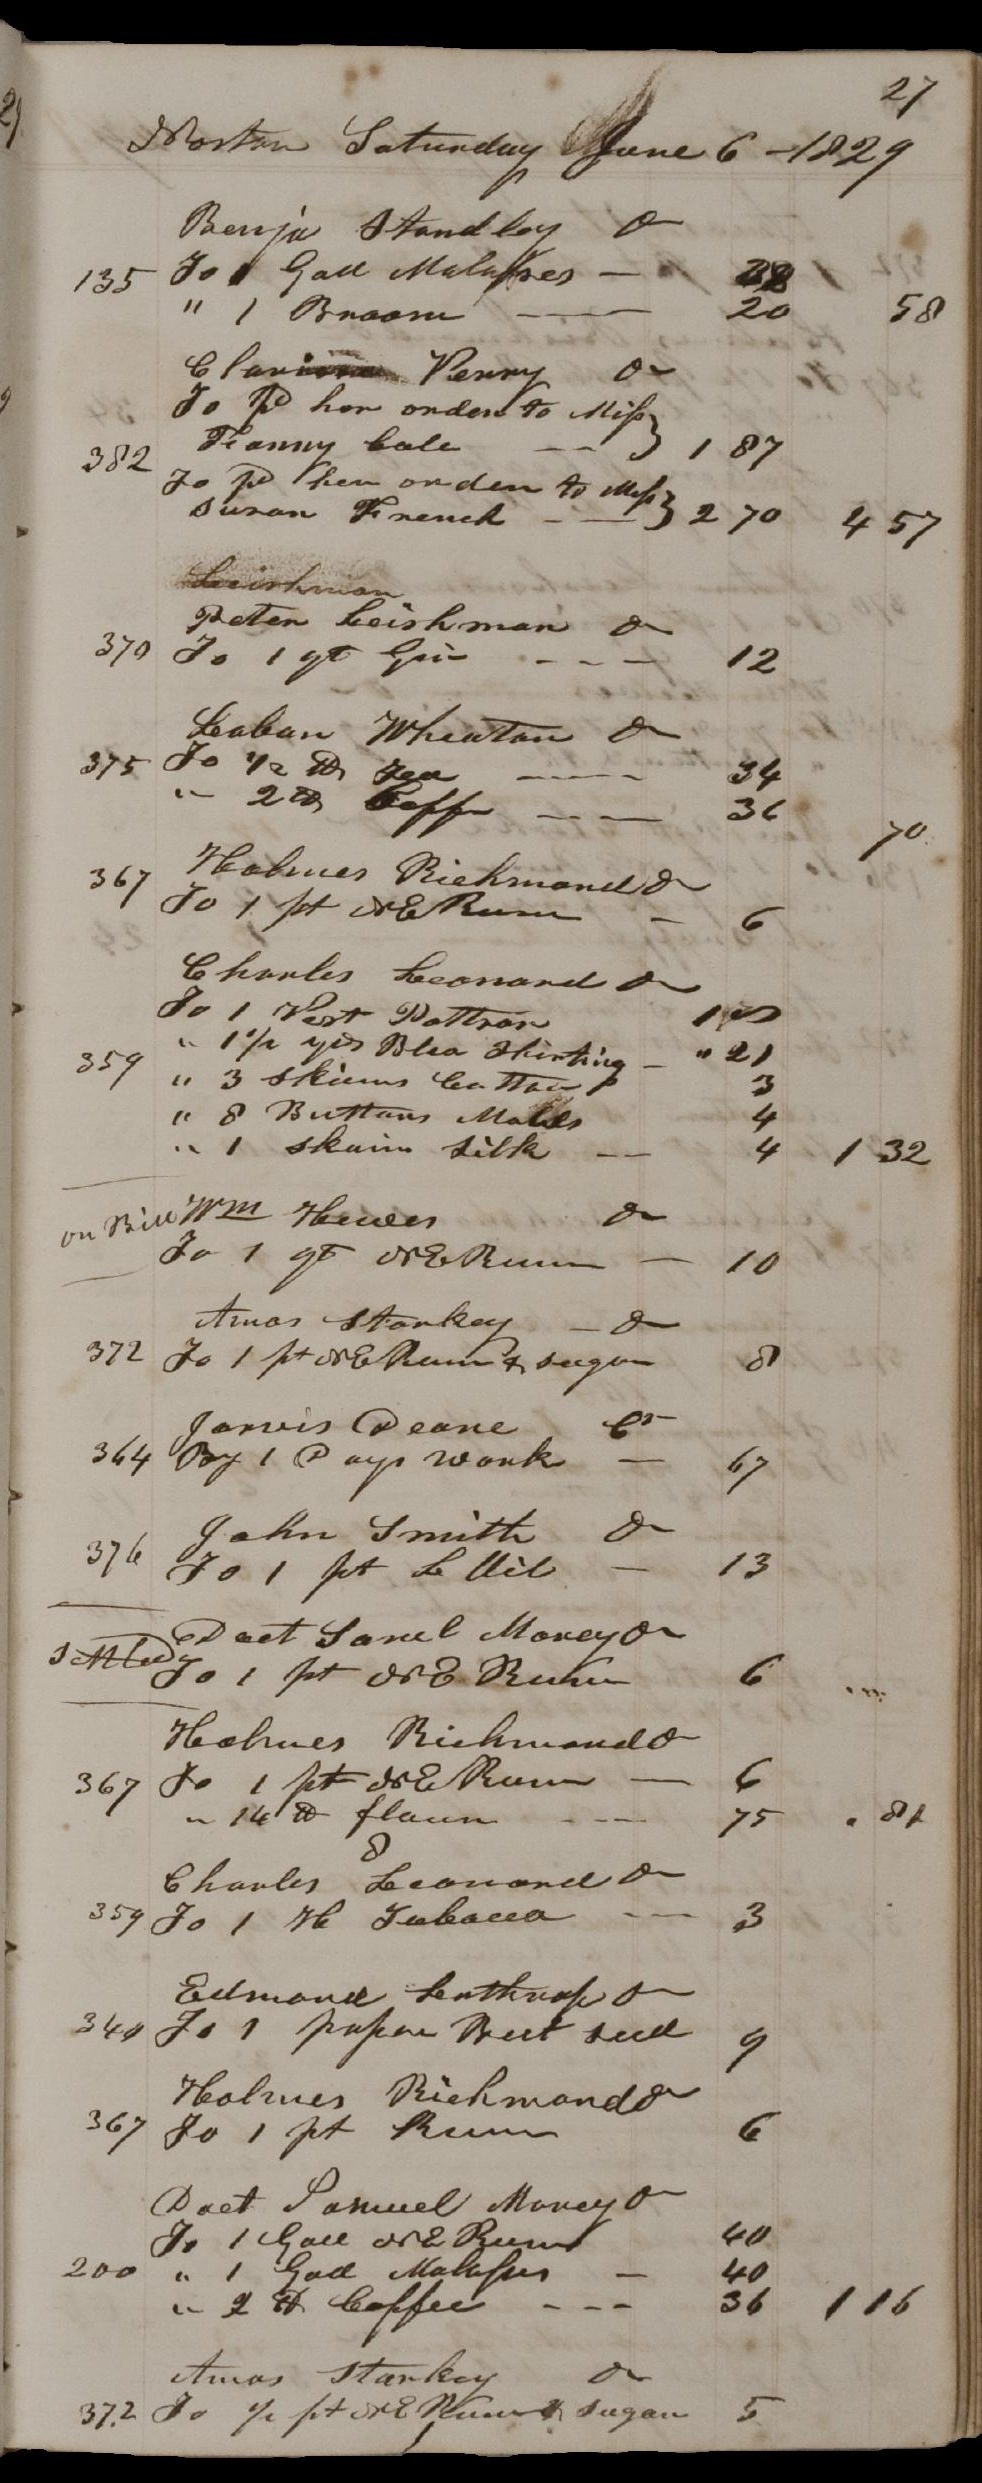 27
Norton Saturday June 6 - 1829
Benja Standley Dr
135 To 1 Gall Molasses — 38
" 1 Broom — 20 58
Perry Dr
To pd her order to Miss
382 Fanny Cole -- 1 87
To pd her order to Miss
Susan French - — 2 70 4 57
Leishman
Peter Leishman Dr
370 To 1 qt Gin - - - 12
Laban Wheaton Dr
375 To 1/2 lb Tea ---- 34
" 2 lb Coffe ---- 36
70
Holmes Richmond Dr
367 To 1 pt N E Rum - 6
Charles Leonard Dr
To 1 Vest Pattron 1 00
" 1 1/2 yds Blea Shirting - " 21
359 " 3 Skiens Cotton 3
" 8 Buttons Molds 4
" 1 skain silk -- 4 1 32
on Bill Wm Hewes Dr
To 1 qt N E Rum — 10
Amos Starkey - Dr
372 To 1 pt N E Rum & sugar 8
Jarvis Deane Cr
364 By 1 Days work — 67
John Smith Dr
376 To 1 pt L Oil - 13
Doct Saml Morey Dr
Settled To 1 pt N E Rum 6
Holmes Richmond Dr
367 To 1 pt N E Rum — 6
" 14 lb flour --- 75 . 81
8
Charles Leonard Dr
359 To 1 H Tobacco --- 3
Edmond Lothrop Dr
340 To 1 paper Beet seed 9
Holmes Richmond Dr
367 To 1 pt Rum 6
Doct Samuel Morey Dr
To 1 Gall N E Rum 40
200 " 1 Gall Molasses - 40
" 2 lb Coffee --- 36 1 16
Amos Starkey Dr
372 To 1/2 pt N E Rum & sugar 5